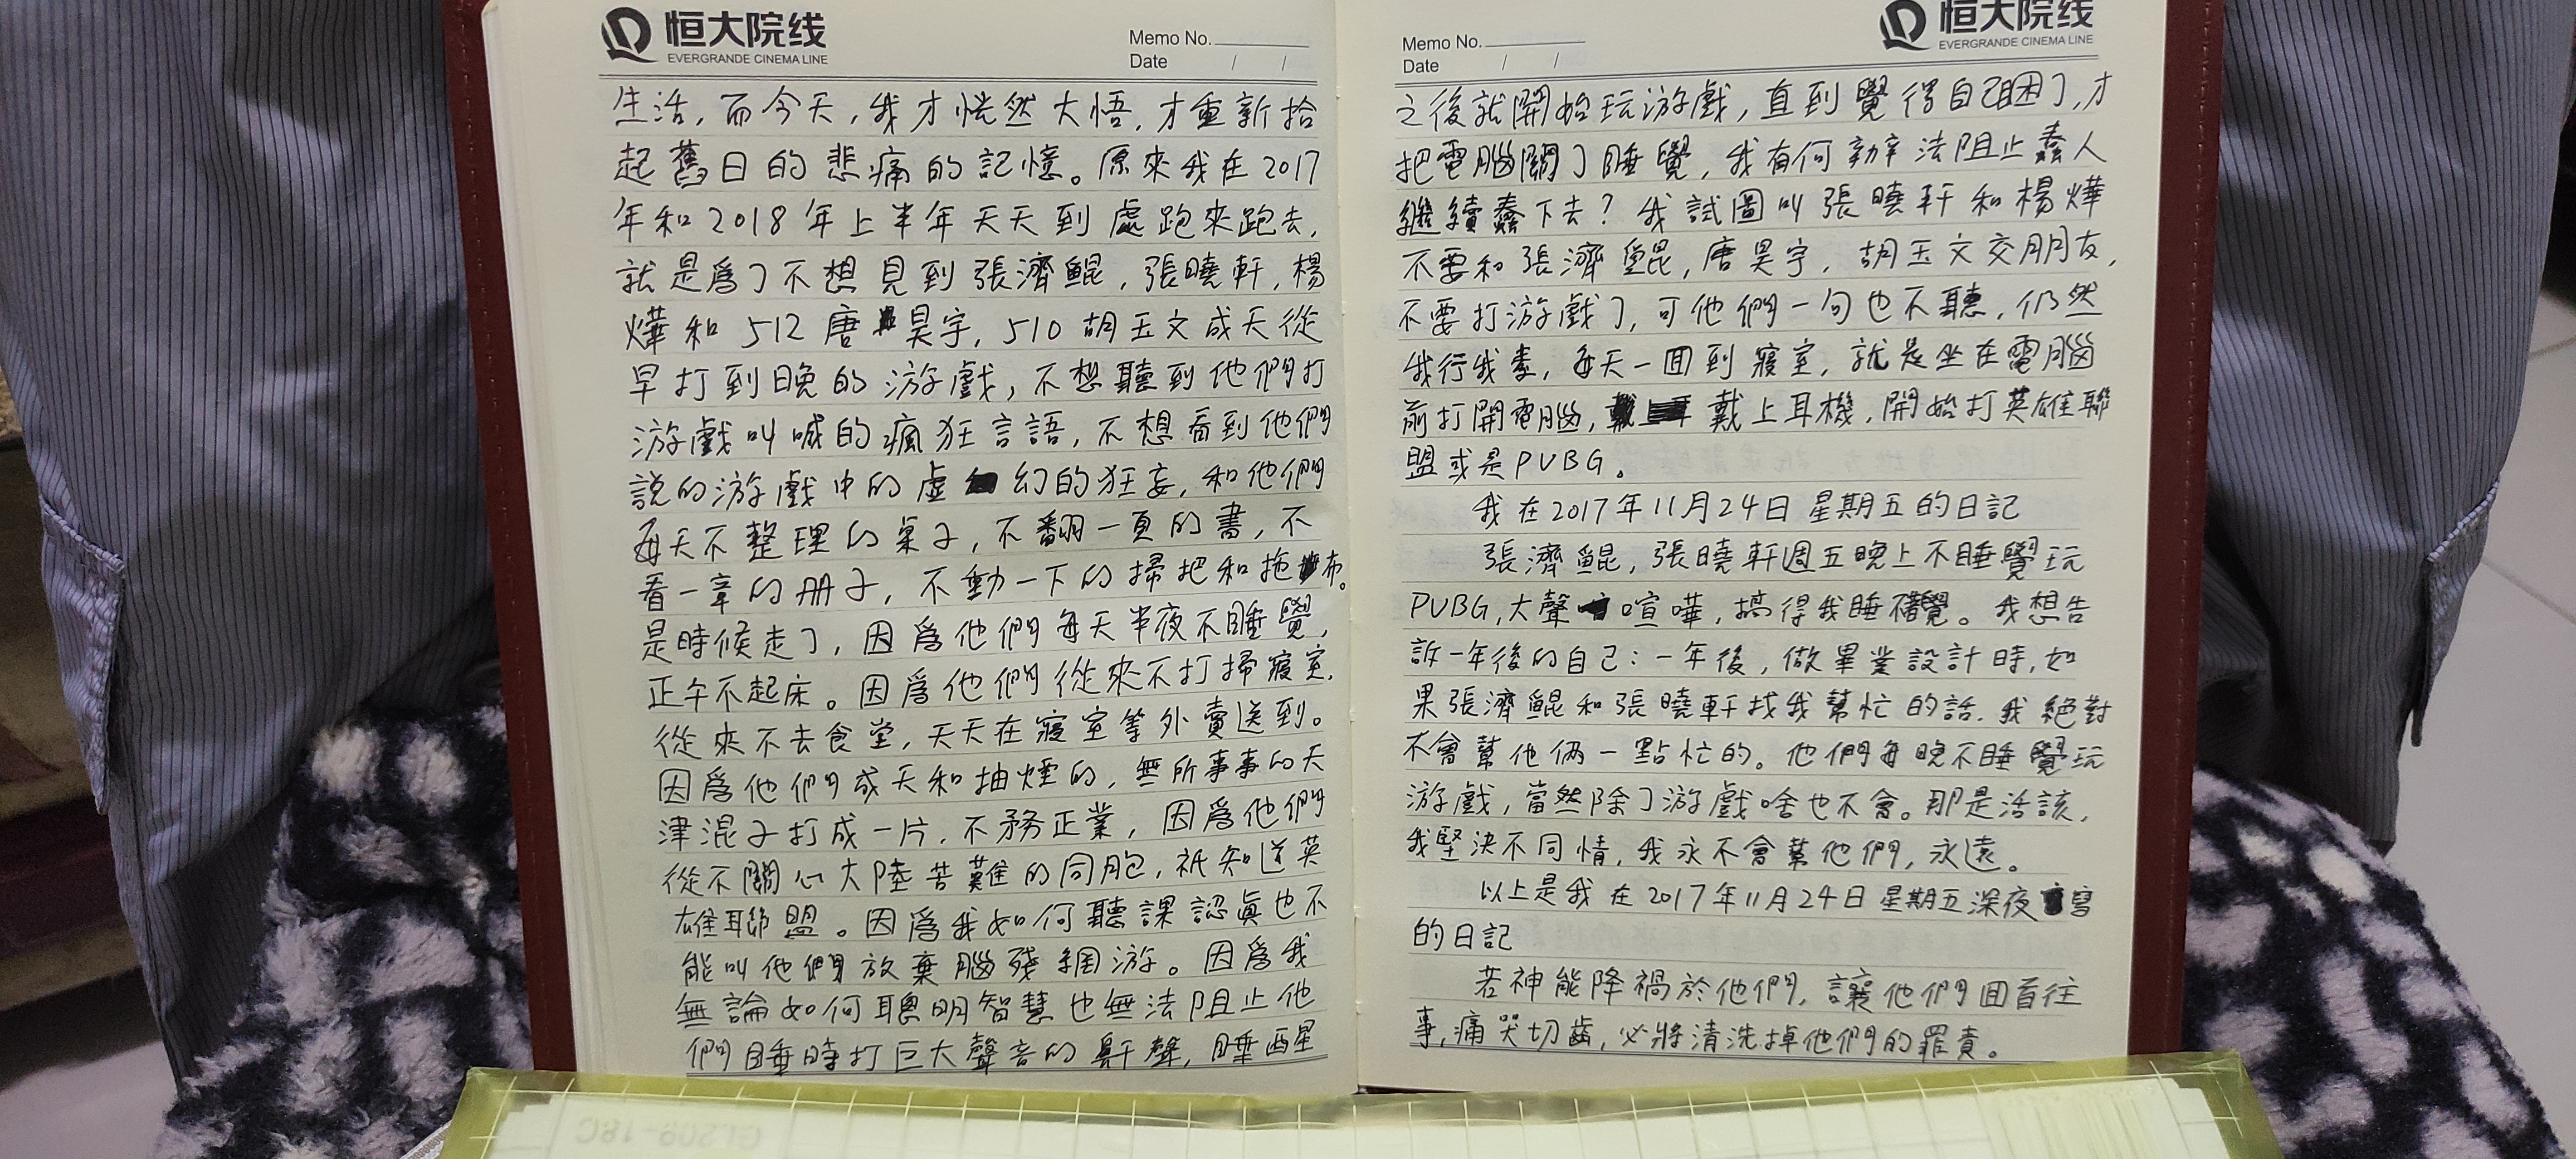 恒大院线
EVERGRANDE CINEMA LINE
Memo No.
Date / /
生活，而今天，我才恍然大悟，才重新拾
起舊日的悲痛的記憶。原來我在2017
年和2018年上半年天天到處跑來跑去，
就是爲了不想見到張濟鯤，張曉軒，楊
燁和512唐昊宇，510胡玉文成天從
早打到晚的游戲，不想聽到他們打
游戲叫喊的瘋狂言語，不想看到他們
説的游戲中的虛幻的狂妄，和他們
每天不整理的桌子，不翻一頁的書，不
看一章的册子，不動一下的掃把和拖布。
是時候走了，因爲他們每天半夜不睡覺，
正午不起床。因爲他們從來不打掃寢室，
從來不去食堂，天天在寢室等外賣送到。
因爲他們成天和抽煙的，無所事事的天
津混子打成一片，不務正業，因爲他們
從不關心大陸苦難的同胞，衹知道英
雄聯盟。因爲我如何聽課認眞也不
能叫他們放棄腦殘網游。因爲我
無論如何聰明智慧也無法阻止他
們睡時打巨大聲音的鼾聲，睡醒
恒大院线
EVERGRANDE CINEMA LINE
Memo No.
Date / /
之後就開始玩游戲，直到覺得自己困了，才
把電腦關了睡覺，我有何辦法阻止蠢人
繼續蠢下去？我試圖叫張曉軒和楊燁
不要和張濟鯤，唐昊宇，胡玉文交朋友，
不要打游戲了，可他們一句也不聽，仍然
我行我素，每天一回到寢室，就是坐在電腦
前打開電腦，戴上耳機，開始打英雄聯
盟或是PUBG。
我在2017年11月24日星期五的日記
張濟鯤，張曉軒週五晚上不睡覺玩
PUBG，大聲喧嘩，搞得我睡不著覺。我想告
訴一年後的自己：一年後，做畢業設計時，如
果張濟鯤和張曉軒找我幫忙的話，我絕對
不會幫他倆一點忙的。他們每晚不睡覺玩
游戲，當然除了游戲啥也不會。那是活該，
我堅決不同情，我永不會幫他們，永遠。
以上是我在2017年11月24日星期五深夜寫
的日記
若神能降禍於他們，讓他們回首往
事，痛哭切齒，必將清洗掉他們的罪責。